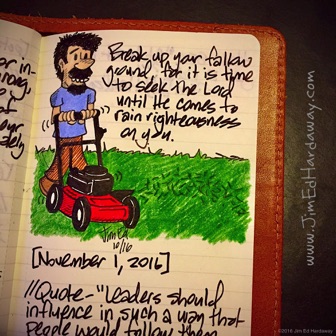 Break up your fallow
ground, for it is time
to seek the Lord
until He comes to
rain righteousness
on you.
Jim Ed
10/16
[November 1, 2016]
//Quote - "Leaders should
influence in such a way that
people would follow them
www.JimEdHardaway.com
©2016 Jim Ed Hardaway